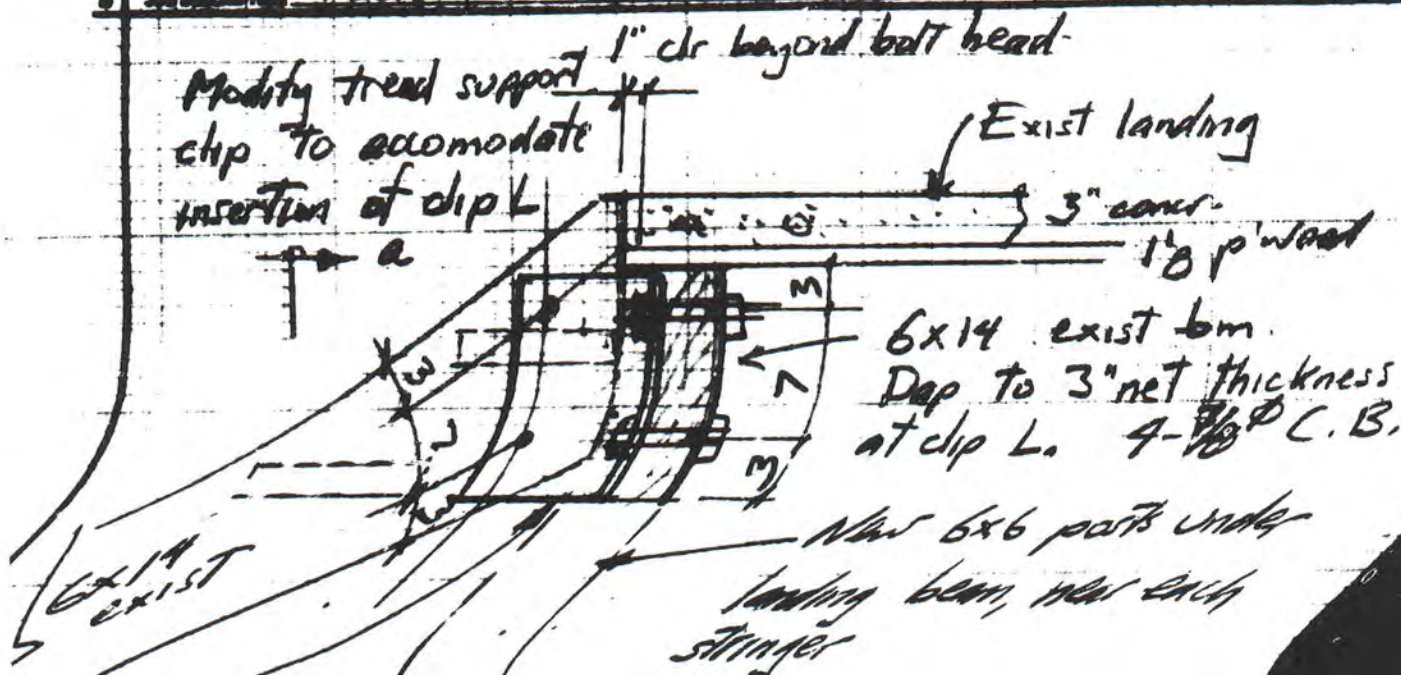 1" clr beyond bolt head
Modify tread support
clip to accomodate
insertion of clip L
a
Exist landing
3" concr.
1⅛ p'wood
3
7
3
6x14 exist bm.
Dap to 3" net thickness
at clip L. 4- ⌀ C.B.
3
7
3
6x14
exist
New 6x6 posts under
landing beam, near each
stringer